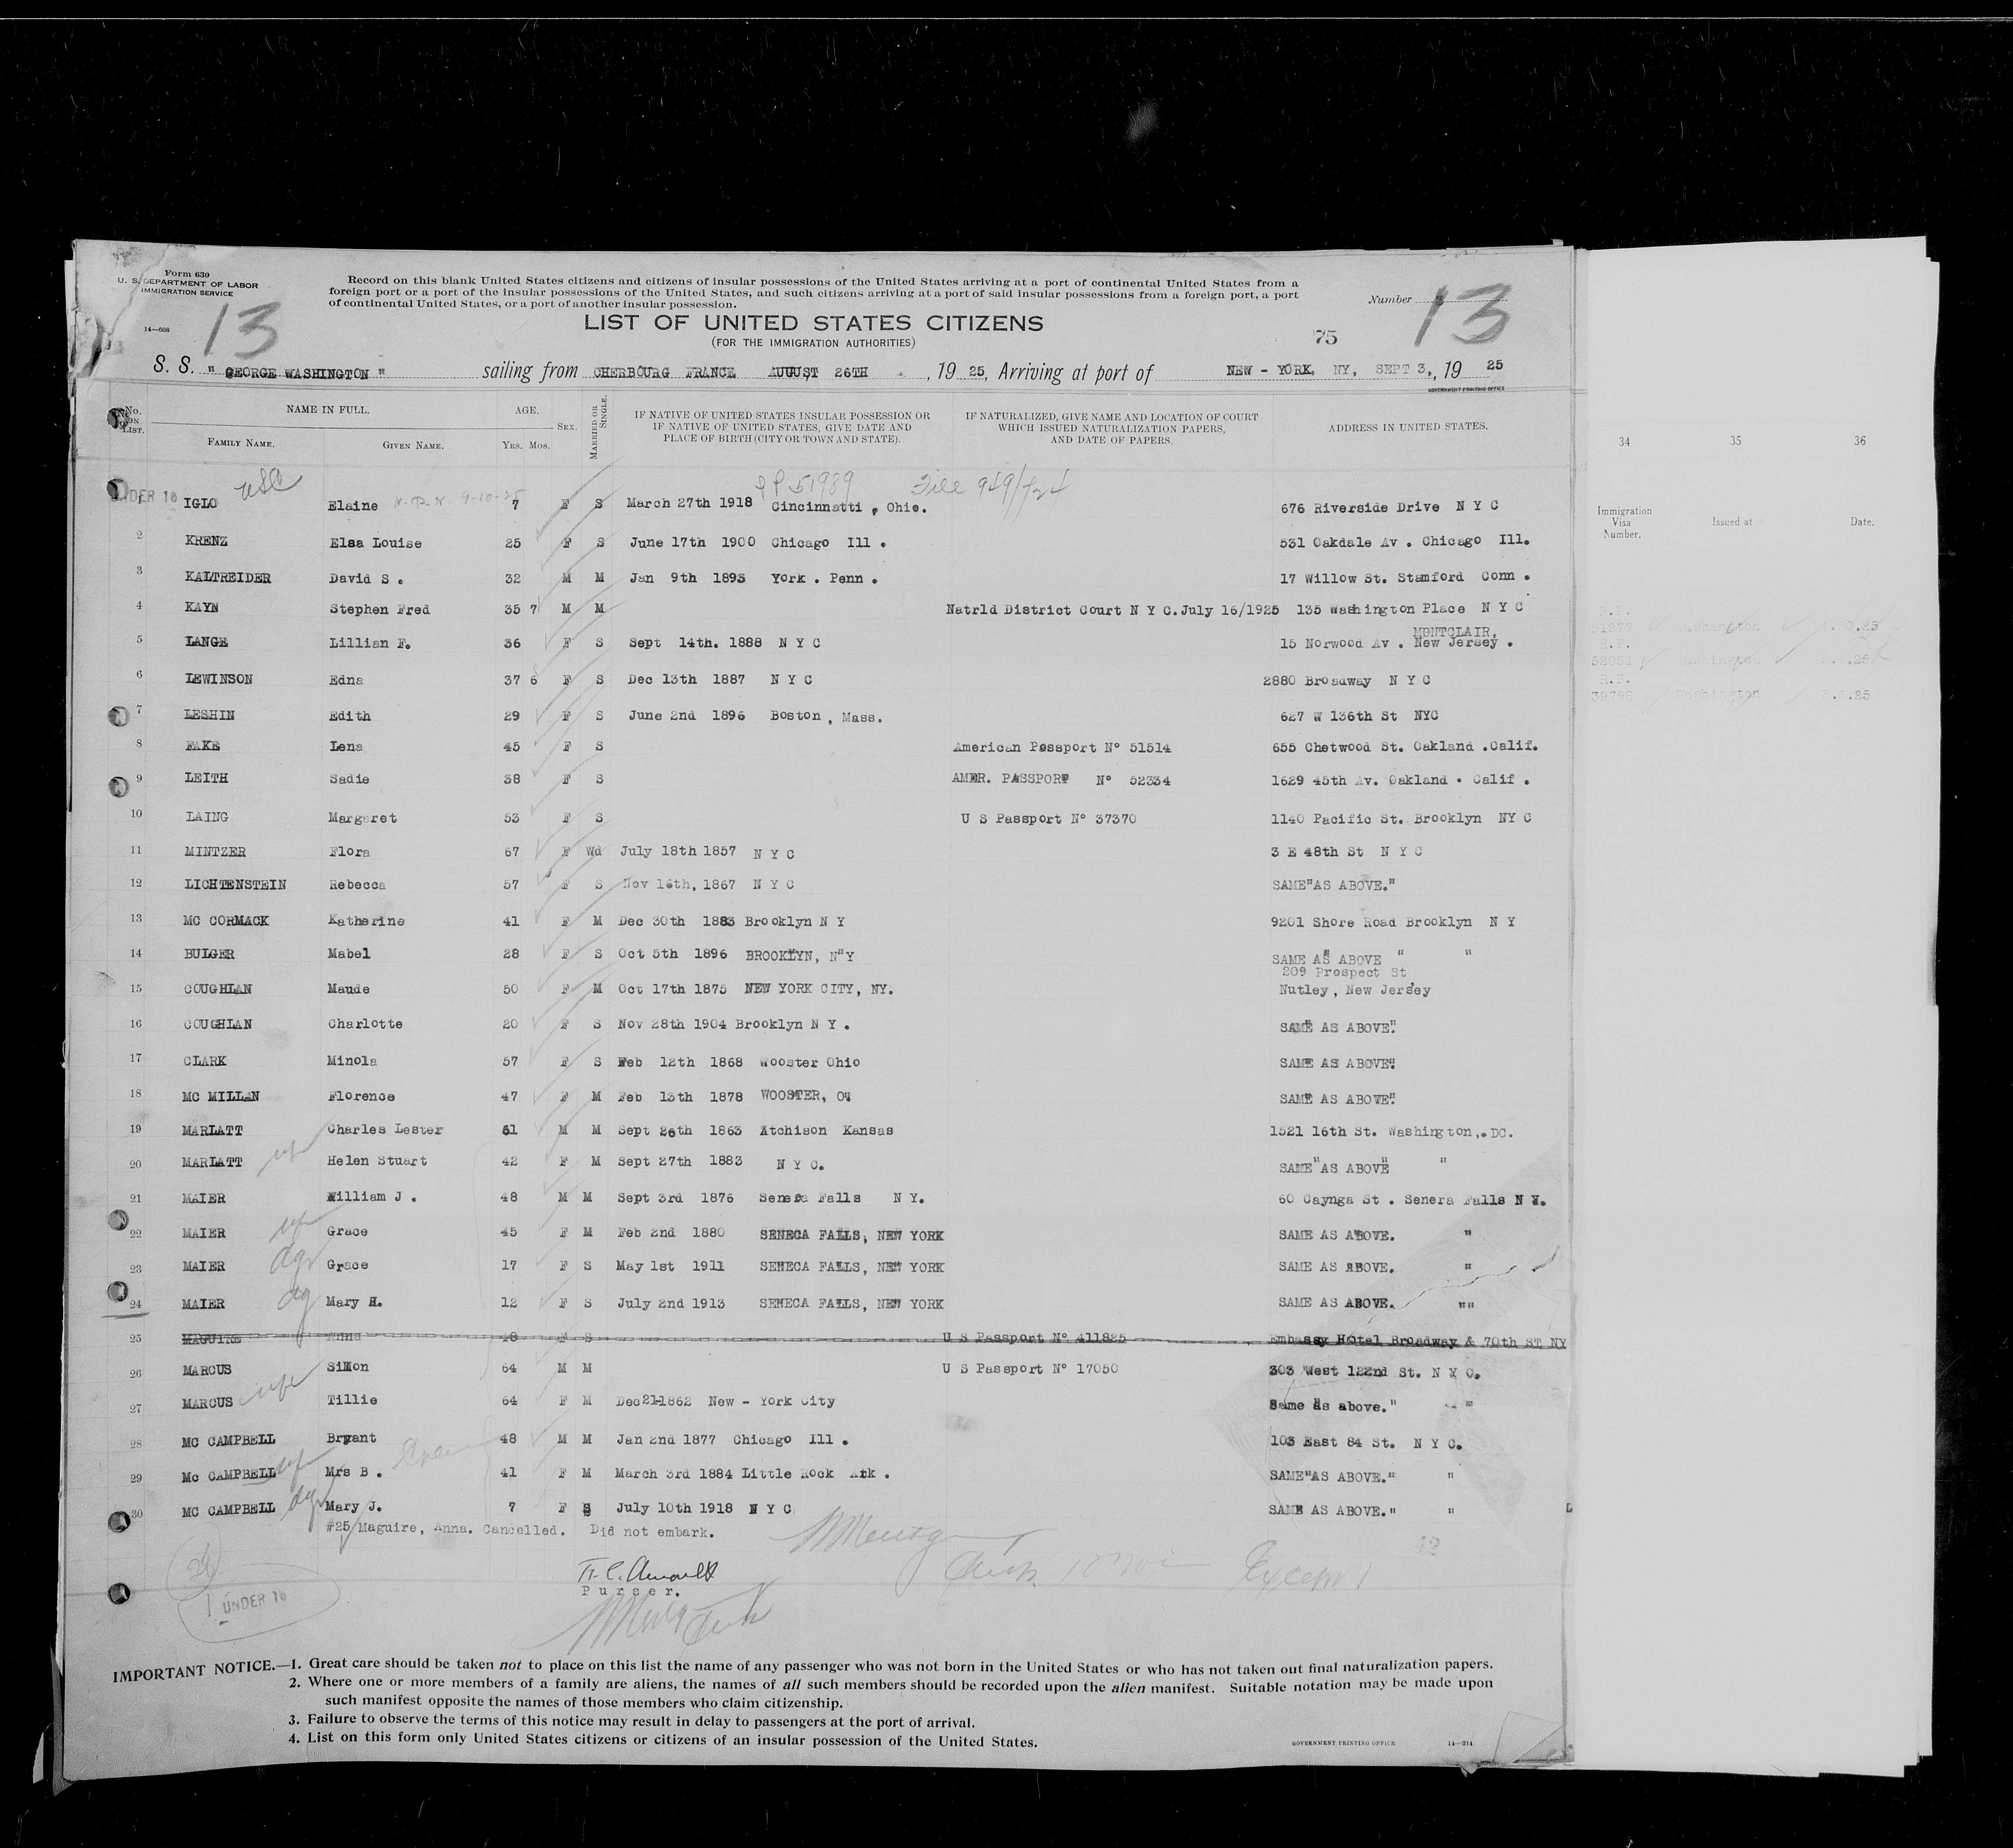 Form 630
U. S. DEPARTMENT OF LABOR
IMMIGRATION SERVICE
14—608
13
Record on this blank United States citizens and citizens of insular possessions of the United States arriving at a port of continental United States from a
foreign port or a port of the insular possessions of the United States, and such citizens arriving at a port of said insular possessions from a foreign port, a port
of continental United States, or a port of another insular possession.
Number 13
LIST OF UNITED STATES CITIZENS
(FOR THE IMMIGRATION AUTHORITIES)
75
S. S. " GEORGE WASHINGTON " sailing from CHERBOURG FRANCE AUGUST 26TH , 19 25, Arriving at port of NEW - YORK, NY, SEPT 3, , 19 25
GOVERNMENT PRINTING OFFICE
No. ON LIST. NAME IN FULL. FAMILY NAME. GIVEN NAME. AGE. YRS. MOS. SEX. MARRIED OR SINGLE. IF NATIVE OF UNITED STATES INSULAR POSSESSION OR IF NATIVE OF UNITED STATES, GIVE DATE AND PLACE OF BIRTH (CITY OR TOWN AND STATE). IF NATURALIZED, GIVE NAME AND LOCATION OF COURT WHICH ISSUED NATURALIZATION PAPERS, AND DATE OF PAPERS. ADDRESS IN UNITED STATES. 34 35 36
USC PP 51989 File 949/724
1 IGLO Elaine 9-10-25 7 F S March 27th 1918 Cincinnatti , Ohio. 676 Riverside Drive N Y C
Immigration Visa Number. Issued at— Date.
2 KRENZ Elsa Louise 25 F S June 17th 1900 Chicago Ill . 531 Oakdale Av . Chicago Ill.
3 KALTREIDER David S . 32 M M Jan 9th 1893 York . Penn . 17 Willow St. Stamford Conn .
4 KAYN Stephen Fred 35 7 M M Natrld District Court N Y C.July 16/1925 135 Washington Place N Y C
MONTCLAIR,
5 LANGE Lillian F. 36 F S Sept 14th. 1888 N Y C 15 Norwood Av . New Jersey .
6 LEWINSON Edna 37 6 F S Dec 13th 1887 N Y C 2880 Broadway N Y C
7 LESHIN Edith 29 F S June 2nd 1896 Boston , Mass. 627 W 136th St NYC
8 FAKE Lena 45 F S American Passport Nº 51514 655 Chetwood St. Oakland .Calif.
9 LEITH Sadie 38 F S AMER. PASSPORT Nº 52334 1629 45th Av. Oakland . Calif .
10 LAING Margaret 53 F S U S Passport Nº 37370 1140 Pacific St. Brooklyn NY C
11 MINTZER Flora 67 F Wd July 18th 1857 N Y C 3 E 48th St N Y C
12 LICHTENSTEIN Rebecca 57 F S Nov 16th, 1867 N Y C SAME"AS ABOVE."
13 MC CORMACK Katherine 41 F M Dec 30th 1883 Brooklyn N Y 9201 Shore Road Brooklyn N Y
14 BULGER Mabel 28 F S Oct 5th 1896 BROOKLYN, N"Y SAME AS ABOVE " "
209 Prospect St
15 COUGHLAN Maude 50 F M Oct 17th 1875 NEW YORK CITY, NY. Nutley, New Jersey
16 COUGHLAN Charlotte 20 F S Nov 28th 1904 Brooklyn N Y . SAME AS ABOVE".
17 CLARK Minola 57 F S Feb 12th 1868 Wooster Ohio SAME AS ABOVE".
18 MC MILLAN Florence 47 F M Feb 13th 1878 WOOSTER, O" SAME AS ABOVE".
19 MARLATT Charles Lester 61 M M Sept 26th 1863 Atchison Kansas 1521 16th St. Washington,. DC.
20 MARLATT wf Helen Stuart 42 F M Sept 27th 1883 N Y C. SAME"AS ABOVE" "
21 MAIER William J . 48 M M Sept 3rd 1876 Senera Falls N Y. 60 Caynga St . Senera Falls N Y.
22 MAIER wf Grace 45 F M Feb 2nd 1880 SENECA FALLS, NEW YORK SAME AS ABOVE. "
23 MAIER dgr Grace 17 F S May 1st 1911 SENECA FALLS, NEW YORK SAME AS ABOVE. "
24 MAIER dg Mary H. 12 F S July 2nd 1913 SENECA FALLS, NEW YORK SAME AS ABOVE. ""
25 MAGUIRE Anna 48 F S U S Passport Nº 411825 Embassy Hotel Broadway & 70th ST NY
26 MARCUS Simon 64 M M U S Passport Nº 17050 303 West 122nd St. N Y C.
27 MARCUS wfe Tillie 64 F M Dec21-1862 New - York City Same as above." "
28 MC CAMPBELL Bryant 48 M M Jan 2nd 1877 Chicago Ill . 103 East 84 St. N Y C.
29 Mc CAMPBELL wf Mrs B . 41 F M March 3rd 1884 Little Rock Ark . SAME"AS ABOVE." "
30 MC CAMPBELL dgr Mary J. 7 F S July 10th 1918 N Y C SAME AS ABOVE." "
#25 Maguire, Anna. Cancelled. Did not embark.
Purser.
1 UNDER 16
IMPORTANT NOTICE.—1. Great care should be taken not to place on this list the name of any passenger who was not born in the United States or who has not taken out final naturalization papers.
2. Where one or more members of a family are aliens, the names of all such members should be recorded upon the alien manifest. Suitable notation may be made upon
such manifest opposite the names of those members who claim citizenship.
3. Failure to observe the terms of this notice may result in delay to passengers at the port of arrival.
4. List on this form only United States citizens or citizens of an insular possession of the United States.
GOVERNMENT PRINTING OFFICE 14—214